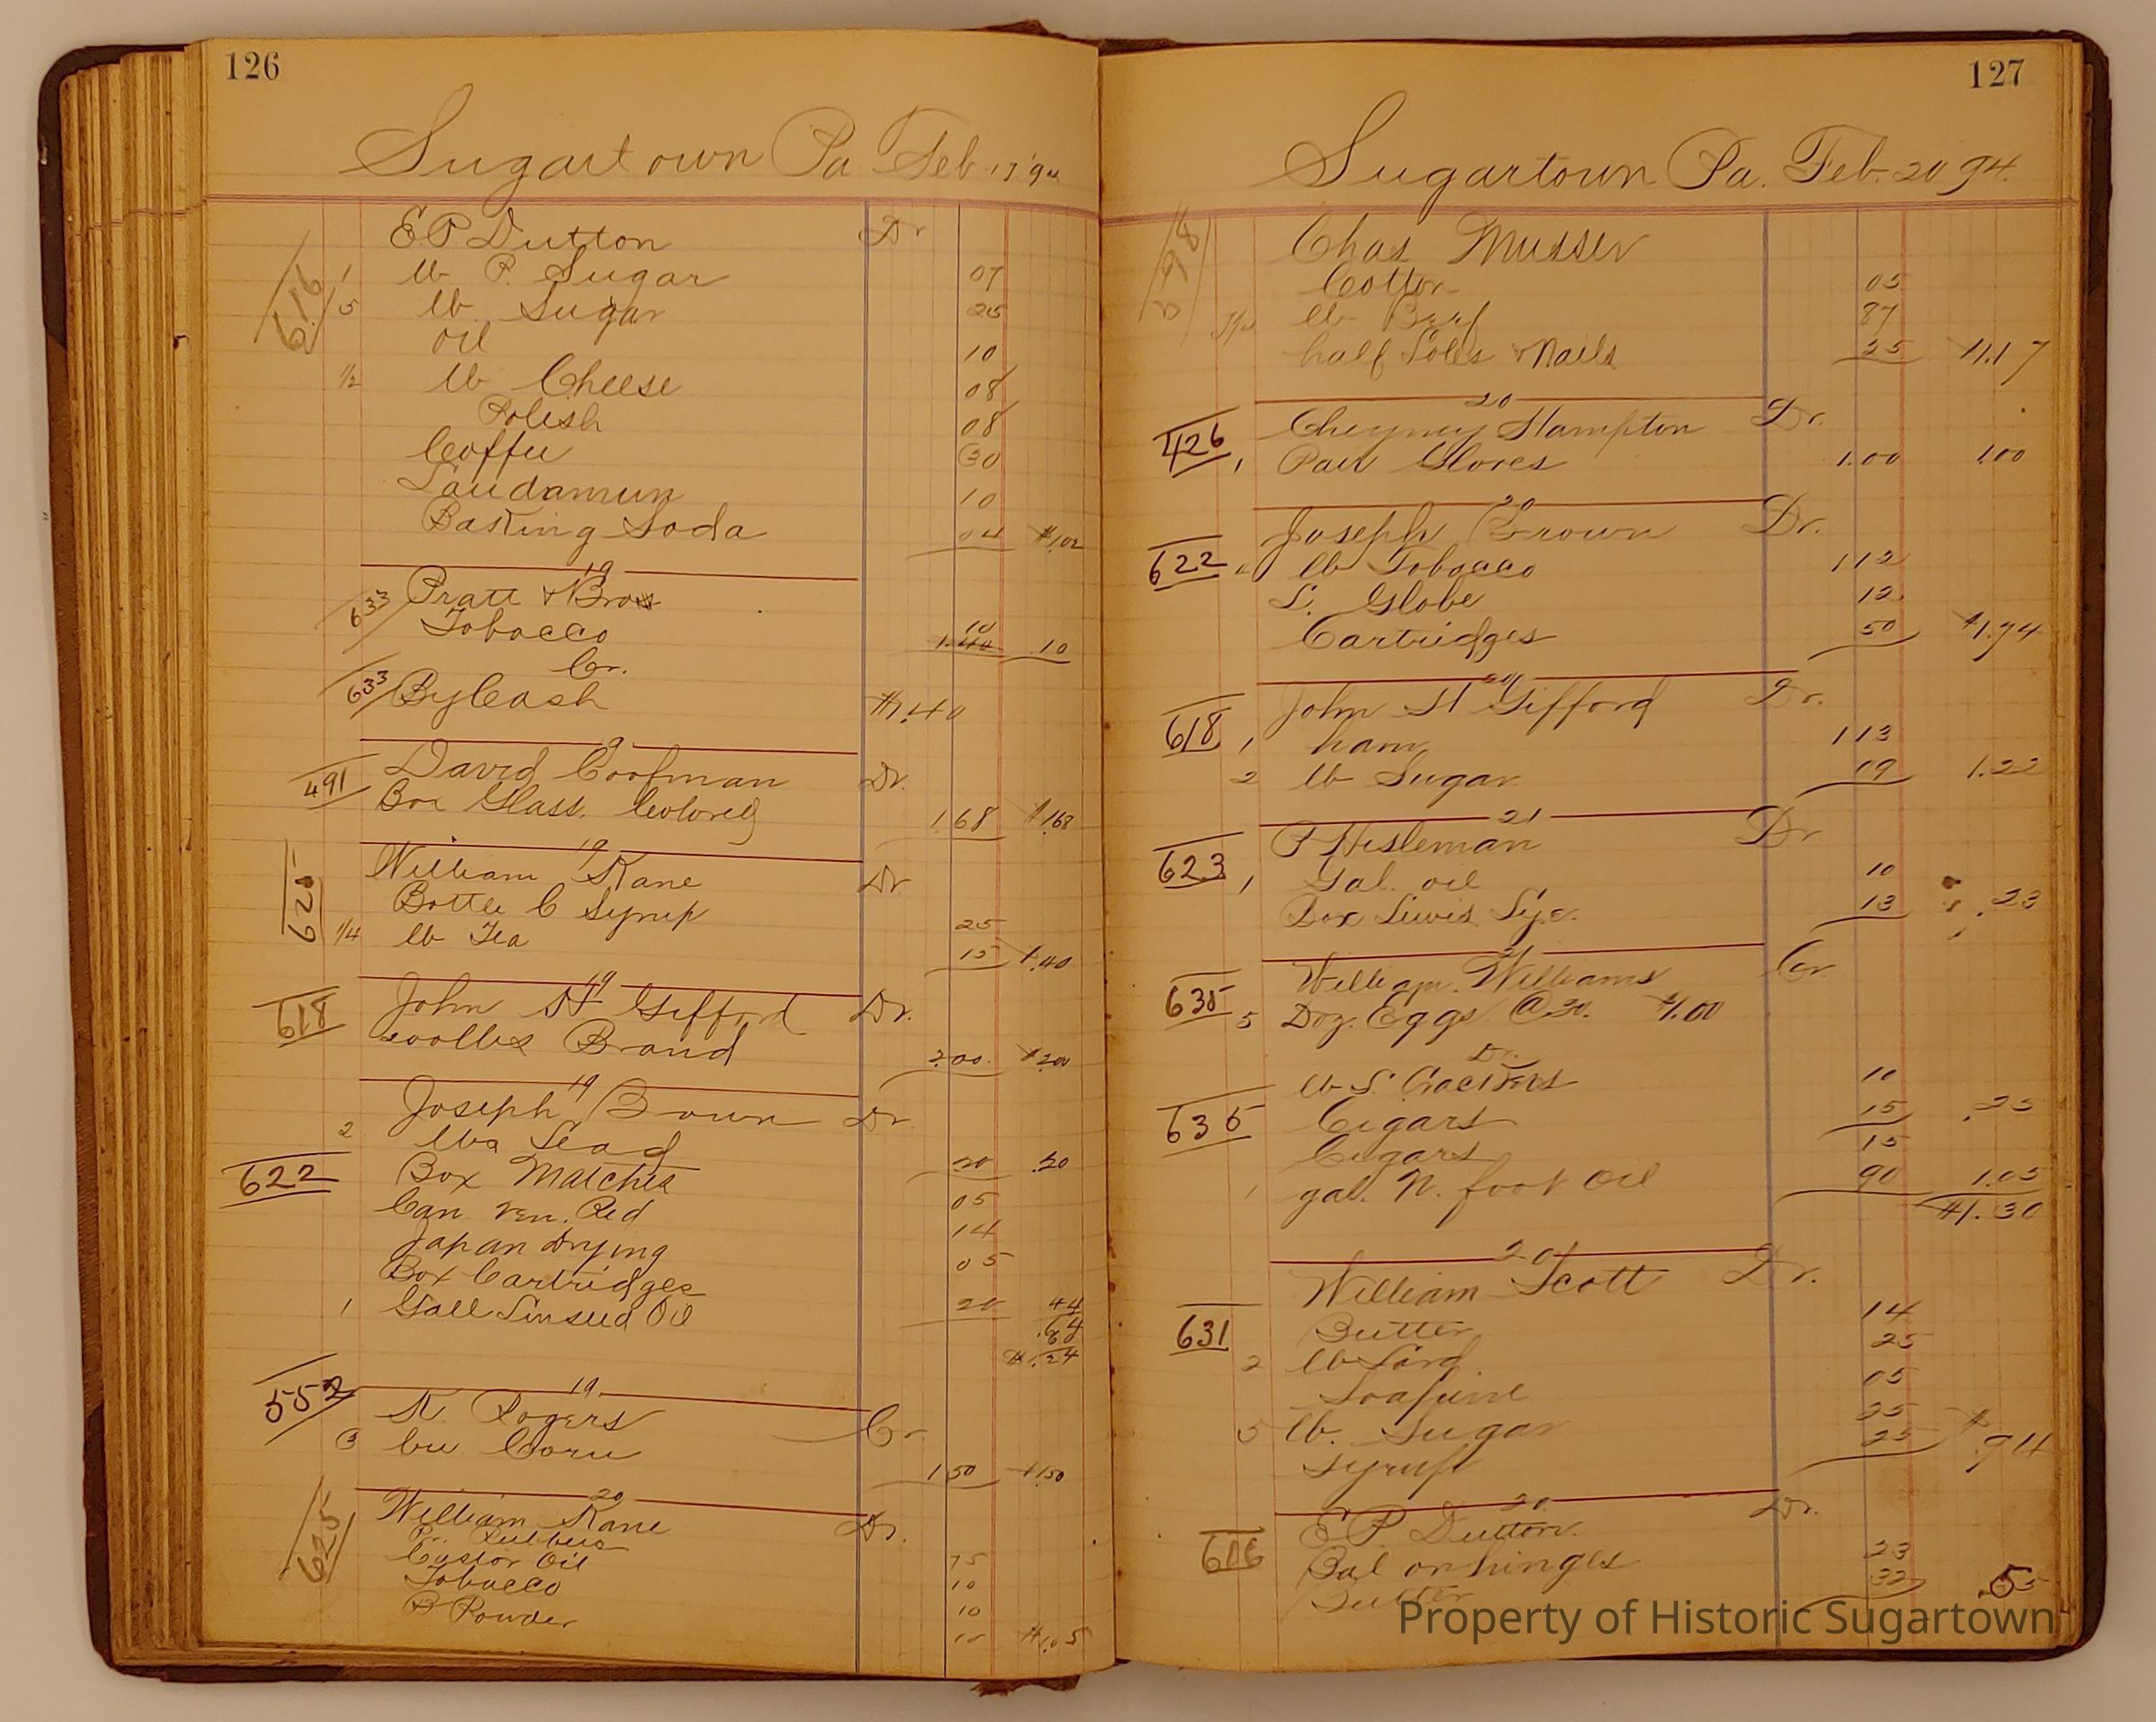 126
Sugartown Pa Feb 17 '94
E P Dutton Dr
616
1 lb P. Sugar 07
5 lb Sugar 25
Oil 10
1/2 lb Cheese 08
Polish 08
Coffee 30
Laudamun 10
Basking Soda 04 $1.02
19
633 Pratt & Bros
Tobacco 10 1.40 .10
Cr.
633 By Cash $1.40
9
David Coofman Dr.
491 Box Glass. Colored 1.68 $1.68
19
William Kane Dr
625 Bottle C Syrup 25
1/4 lb Tea 15 $.40
19
John H Gifford Dr.
618 Brand 2.00. $2.00
19
Joseph Brown Dr
2 lbs Lead 20 .20
622 Box Matches 05
Can Ven. Red 14
Japan Drying 05
Box Cartridges 20 44
1 Gall Linseed Oil .64
$ .24
19.
552 K. Rogers Cr
3 bu Corn 1.50 $1.50
20
William Kane Dr.
625 Pr. Rubbers 75
Castor Oil 10
Tobacco 10
B Powder 10 $1.05
127
Sugartown Pa. Feb. 20 94.
398 Chas Musser
Cotton 05
lb Beef 87
half Soles & Nails 25 $1.17
20
426 Cheyney Hampton Dr.
1 Pair Gloves 1.00 1.00
20
Joseph Brown Dr.
622 lb Tobacco 112
L. Globe 12
Cartridges 50 $1.74
20
John H Gifford Dr.
618 1 ham 113
2 lb Sugar 09 1.22
21
P Hisleman Dr
623 1 Gal. oil 10
Box Lewis Lye. 13 .23
21
William. Williams Cr
635 5 Doz. Eggs @ 20. $1.00
Dr.
lb S. Crackers 10
635 Cigars 15 .25
Cigars 15
1 gal. N. foot Oil 90 1.05
$1.30
20
William Scott Dr.
631 Butter 14
2 lb Lard 25
Soapine 05
5 lb. Sugar 25
Syrup 25 $.94
20
E P. Dutton. Dr.
616 Bal on hinges 23
Butter 32 .55
Property of Historic Sugartown